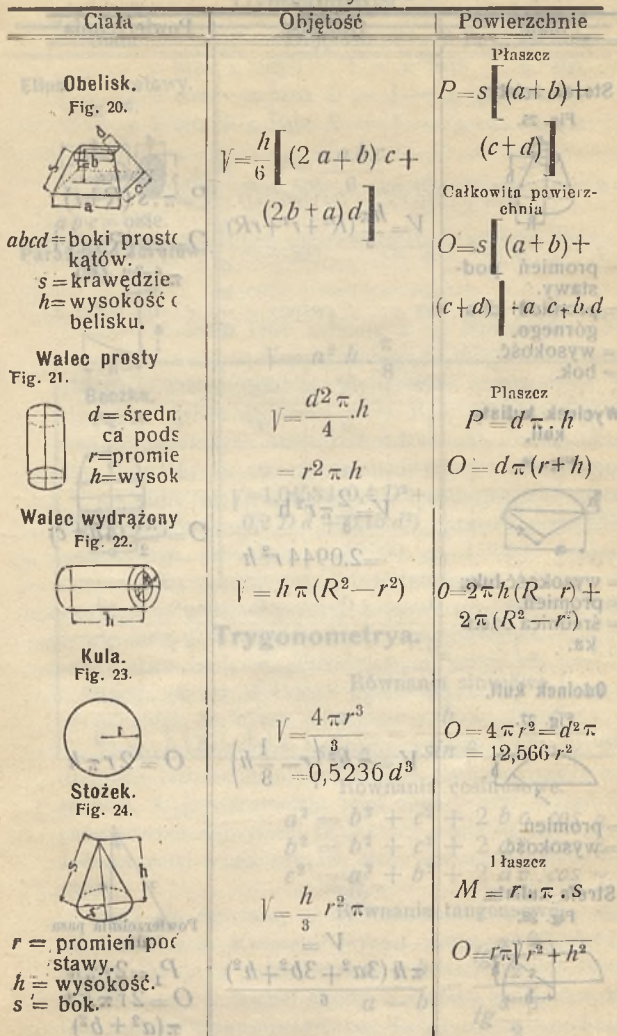 Ciała | Objętość | Powierzchnie
Obelisk.
Fig. 20.
abcd = boki prosto
kątów.
s = krawędzie
h = wysokość o
belisku.
V = h/6 [ (2 a + b) c +
(2b + a) d ]
Płaszcz
P = s [ (a+b) +
(c+d) ]
Całkowita powierz-
chnia
O = s [ (a+b) +
(c+d) ] + a c + b.d
Walec prosty
Fig. 21.
d = średn
ca pods
r = promie
h = wysok
V = d2 π / 4 . h
= r2 π h
Płaszcz
P = d π . h
O = d π (r + h)
Walec wydrążony
Fig. 22.
h
V = h π (R² — r²)
O = 2 π h (R r) +
2 π (R² — r²)
Kula.
Fig. 23.
r
V = 4 π r³ / 3
= 0,5236 d³
O = 4 π r² = d² π
= 12,566 r²
Stożek.
Fig. 24.
s h
r
r = promień pod
stawy.
h = wysokość.
s = bok.
V = h/3 r² π
Płaszcz
M = r . π . s
O = rπ√r² + h²